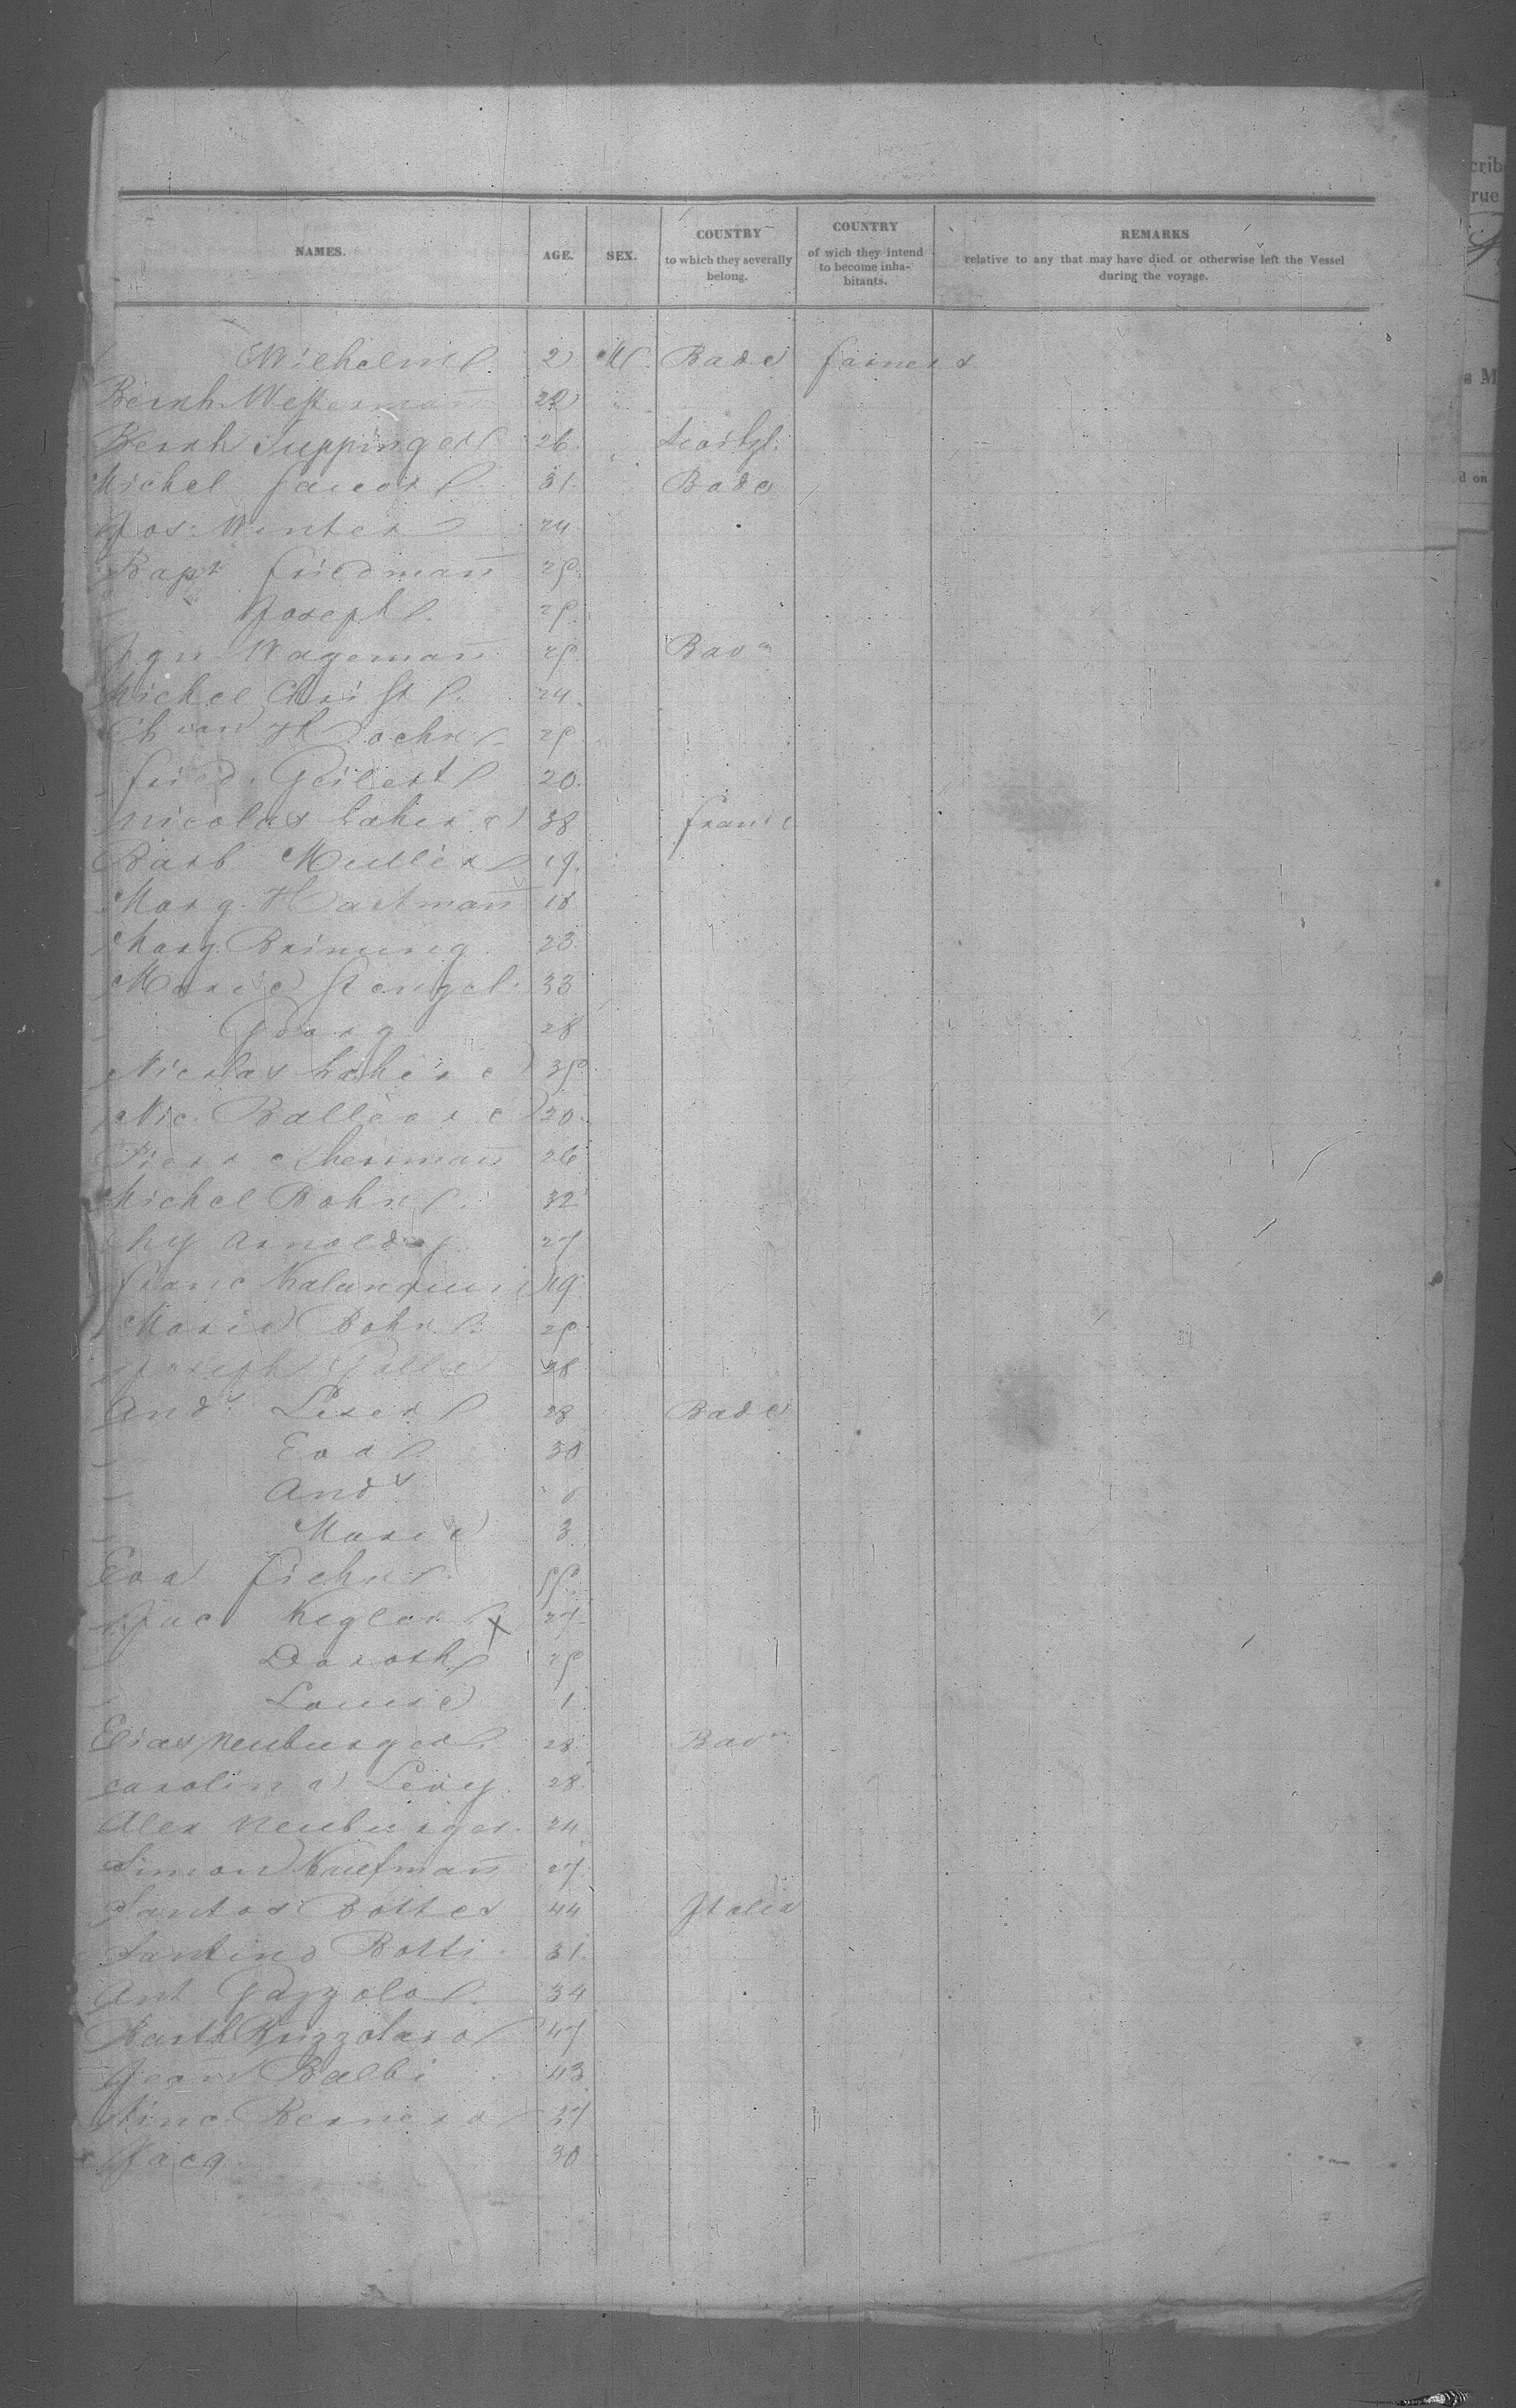 NAMES. AGE. SEX. COUNTRY to which they severally belong. COUNTRY of wich they intend to become inhabitants. REMARKS relative to any that may have died or otherwise left the Vessel during the voyage.
Wilhelm 2 M. Bade farmers
Bernh Westermañ 22
Bernh Tuppinger 26
Michel 31 Bade
Jos. Winter 24
Bapt friedmañ 25
Joseph 25
Ign Wagemañ 25 Bavn
Michel Christ 24
25
fried. Geilert 20
Nicolas Lahire 38 france
Barb Muller 19
Marg. Hartmañ 18
Marg. Brinung 23
Marie Stengel 33
Georg 28
Nicolas Lahire 35
Nic. Balliere 20
Pierre hermañ 26
Michel Bohn 32
Hy Arnoldy 27
franc 19
Marie Bohn 25
Joseph Galle 28
Ands Leser 28 Bade
Eva 30
Ands
Marie 3
Eva fichn 55
Jac Kegler x 27
Doroth 25
Louise 1
Elias Neuburger 28 Bavn
Carolina Levy 28
Alex Neuburger 24
Simon Kaufmañ 27
Santos Bottes 44 Italia
Santino Botti 31
Ant Gazzolo 34
Barth Rizzolaro 47
Jean Balbi 43
Vinc. Bernero 37
Jacq 30
crib
rue
s M
d on